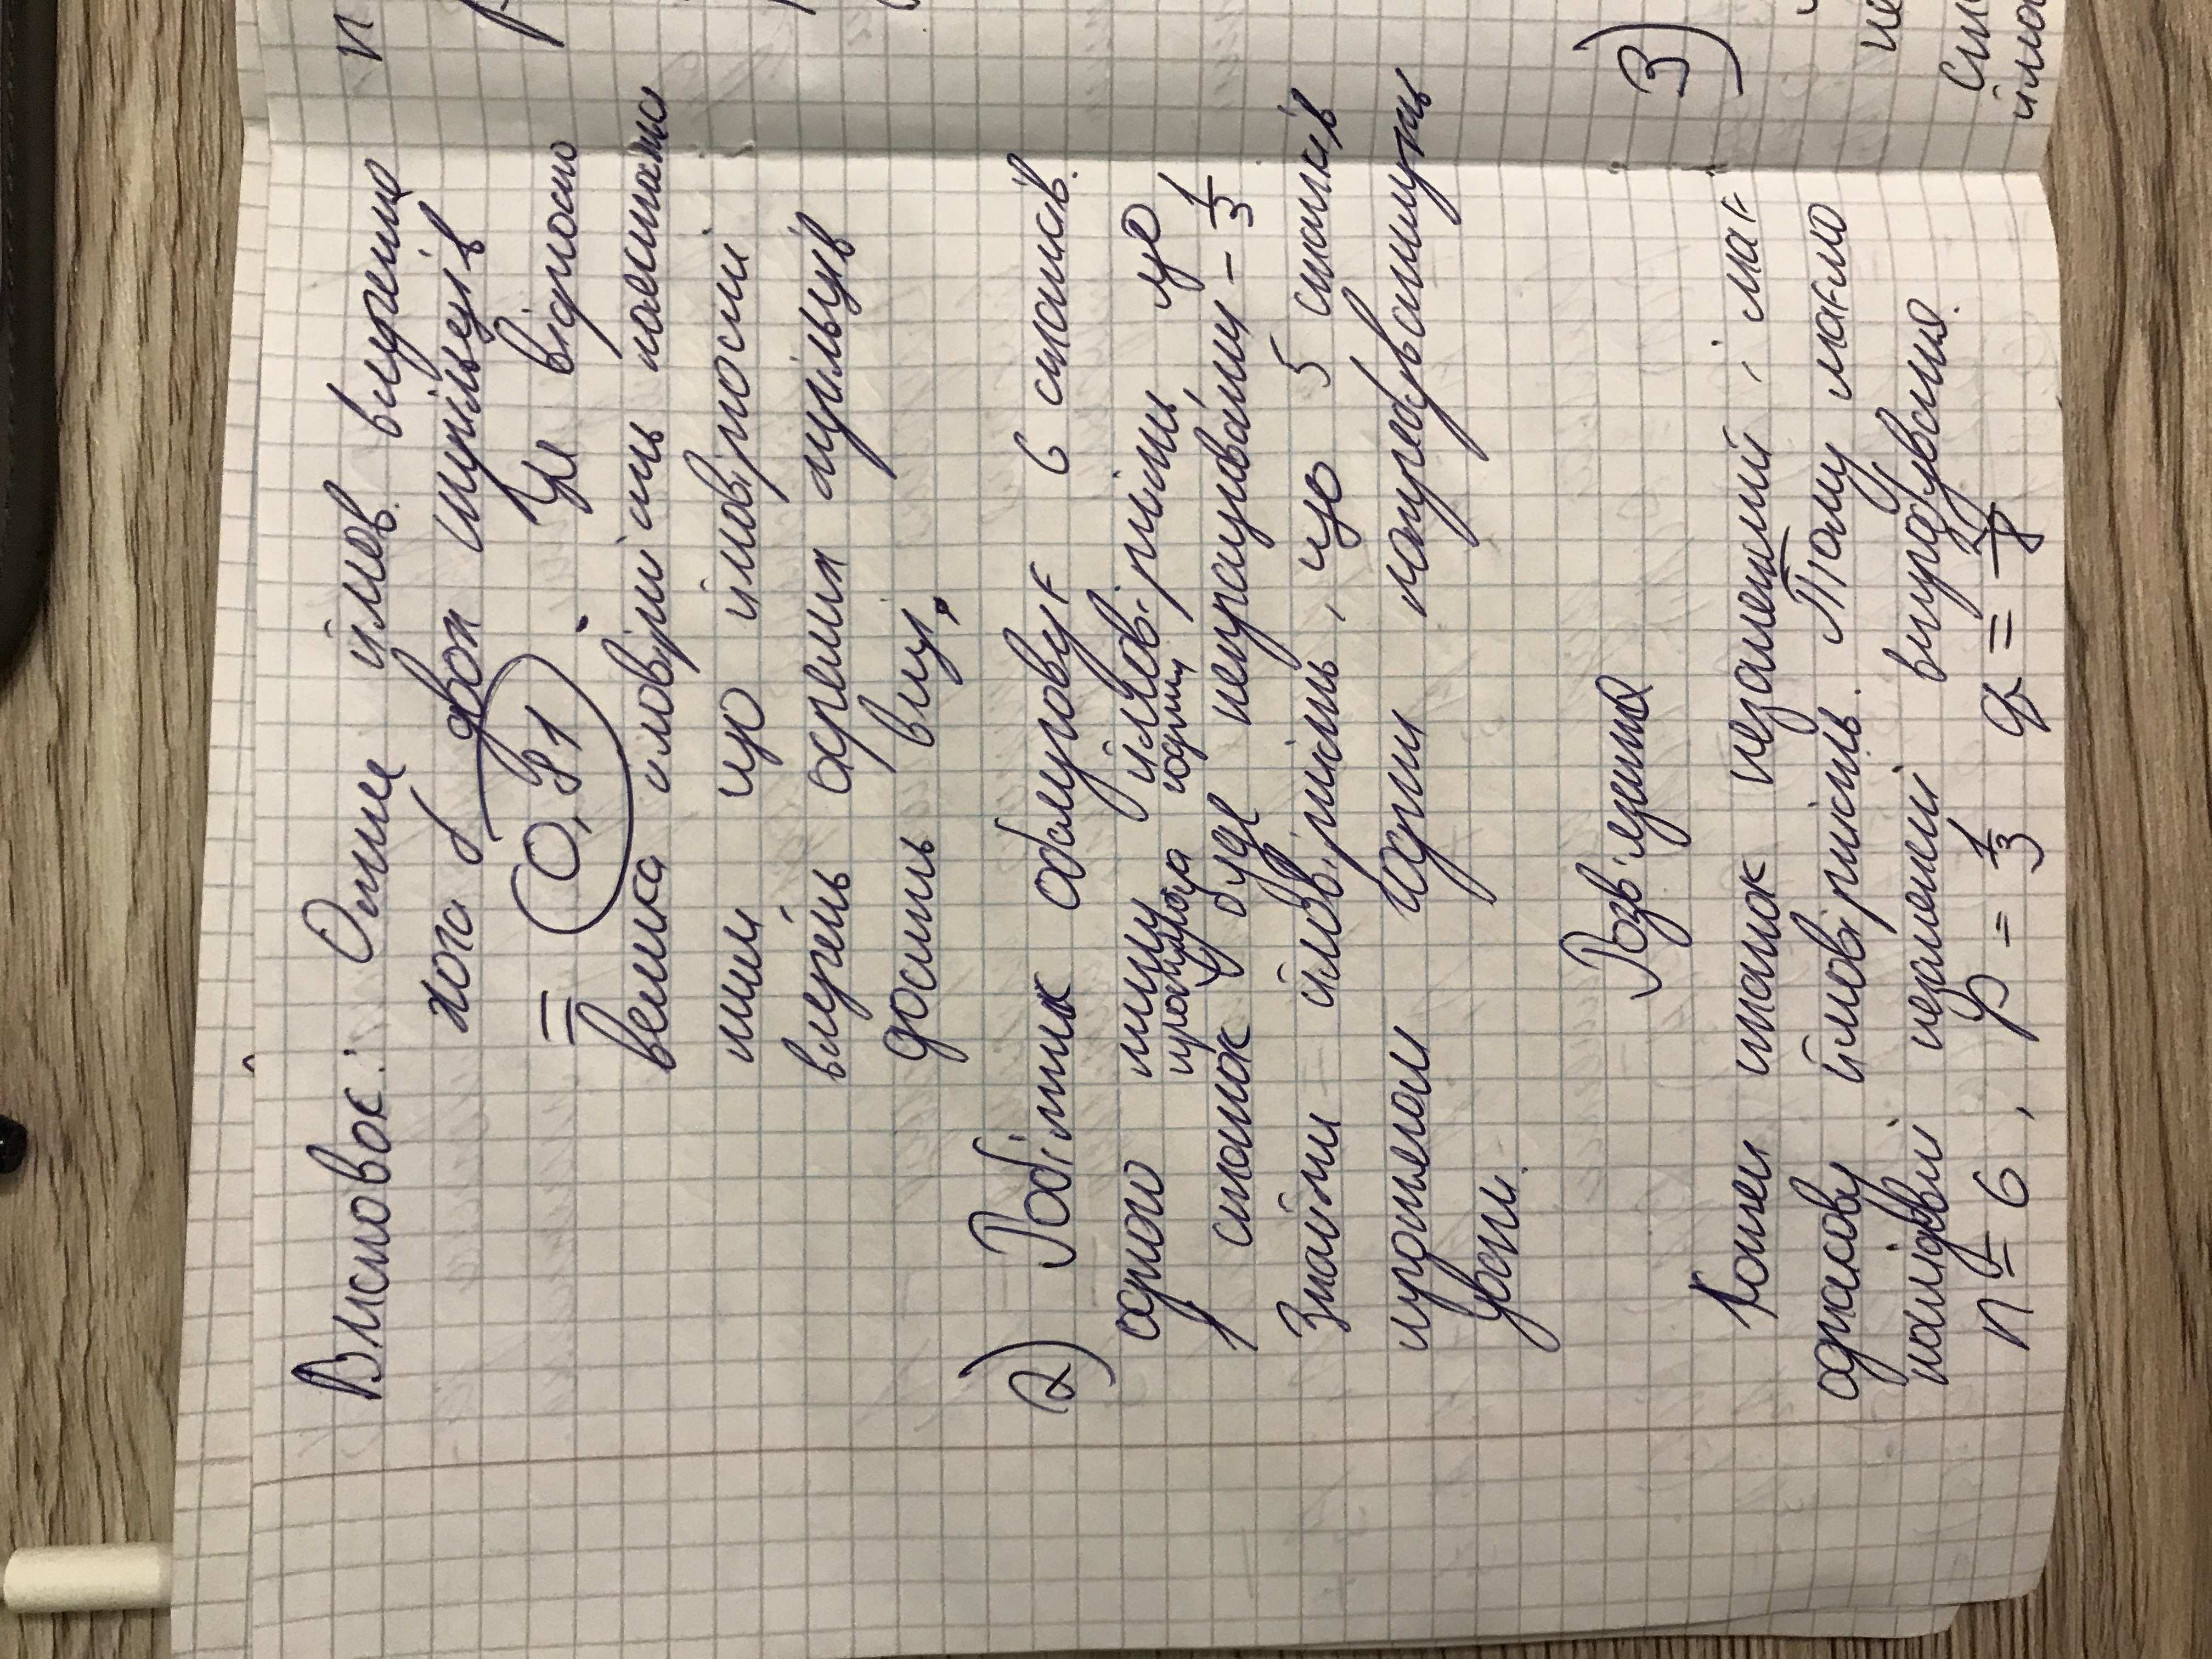 Висновок: Отже ймов. влучення
хоча б двох стрільців
= 0,81 . Це відносно
велика ймовірність
тим що ймовірності
влучень окремих стрільців
досить вищі.
2) Робітник обслуговує 6 станків.
одного типу, ймовірність, що
протягом години
1 станок буде непрацювати - 1/3
Знайти ймовірність, що 5 станків
протягом годин потребуватимуть
уваги.
Розв'язання
Кожен станок незалежний і має
однакову ймовірність. Тому маємо
послідовні незалежні випробування.
n = 6 , p = 1/3 q =
n
3)